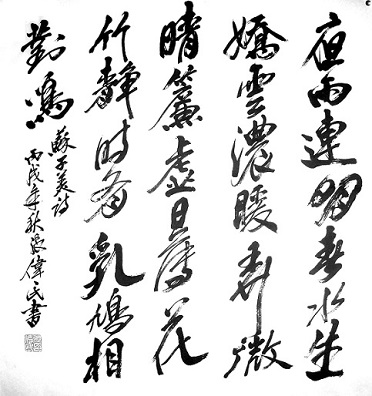 夜雨連明春水生
嬌雲濃暖弄微
晴簾虛日薄花
竹靜時有乳鳩相
對鳴
蘇子美詩
丙戌年秋偉民書